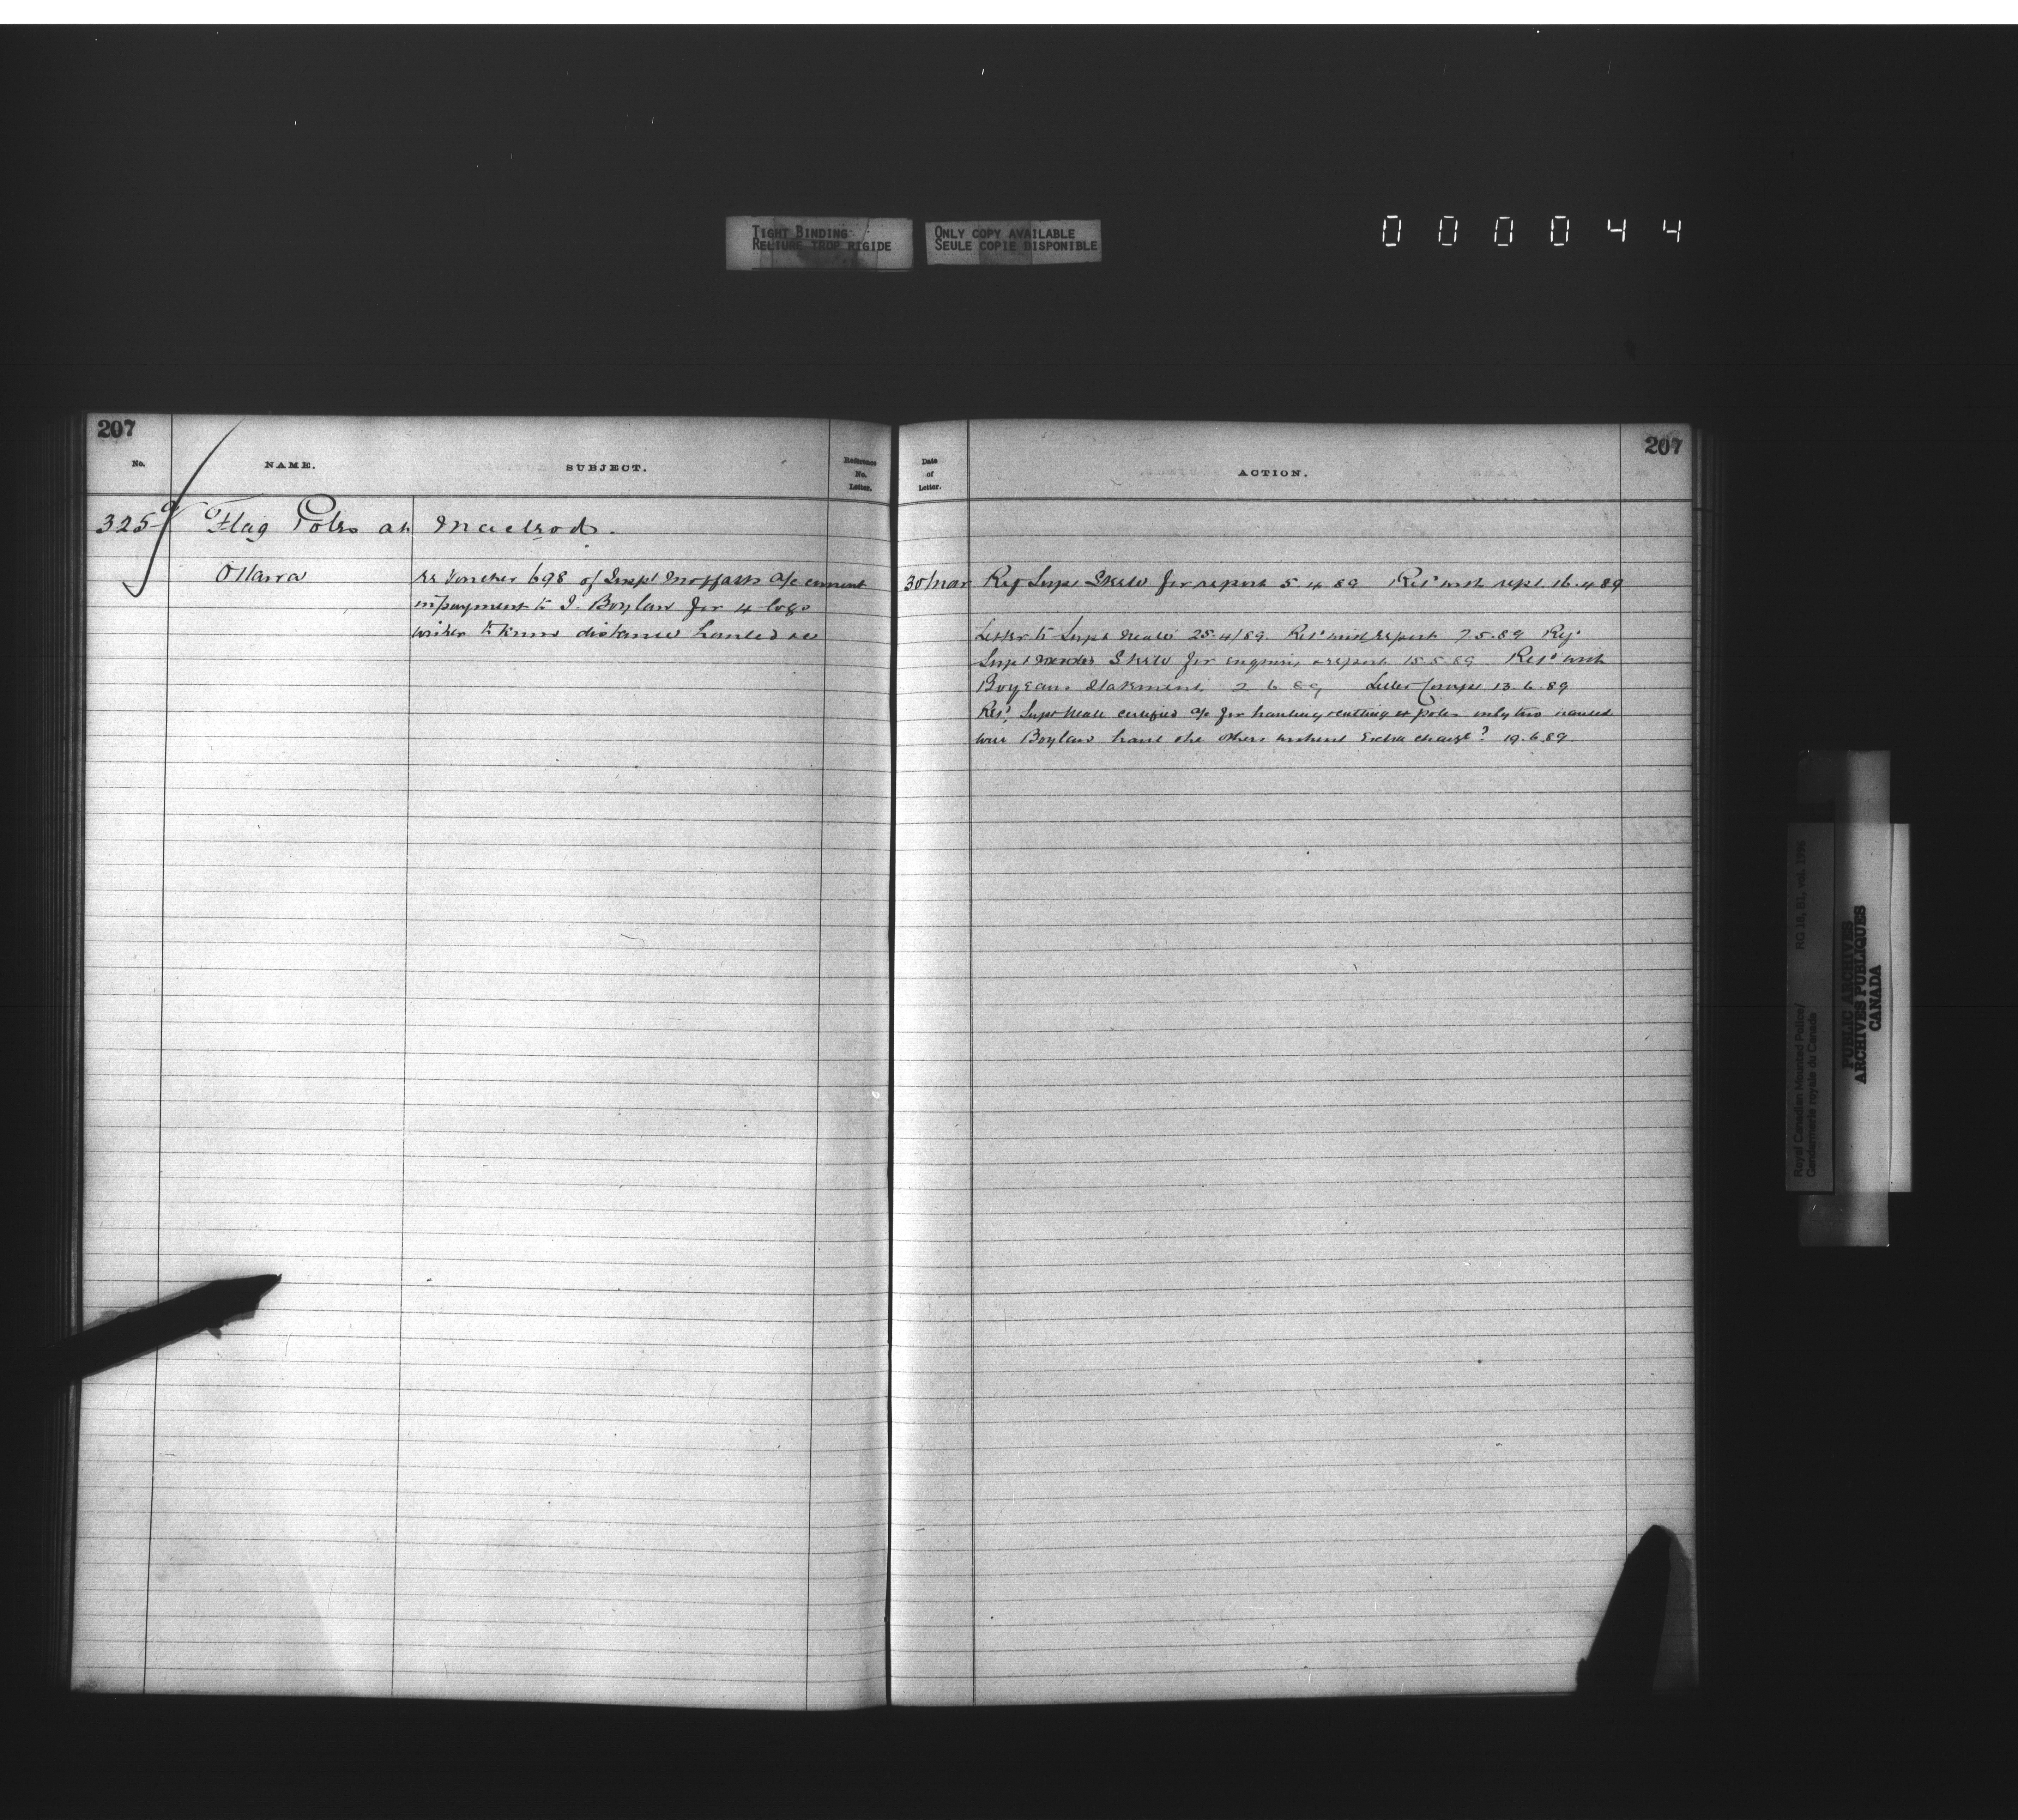 TIGHT BINDING
RELIURE TROP RIGIDE
ONLY COPY AVAILABLE
SEULE COPIE DISPONIBLE
000044
207
No.
NAME.
SUBJECT.
Reference
No.
Letter.
325
Flag Poles at Macleod.
O'Hara
re Voucher 698 of Inspt Moffatt a/c current
in payment to J. Boylan for 4 logs
wishes to know distance hauled &c
207
Date
of
Letter.
ACTION.
30/Mar
Ref Supt Steele for report 5.4.89 Ret'd with rept. 16.4.89
Letter to Supt Neale 25.4/89. Ret'd with report 7.5.89 Ref'd
Supt Steele for enquiry & report 15.5.89 Ret'd with
Boylans Statement 2.6.89 Letter Compt 13.6.89
Ret'd, Supt Neale certified a/c for hauling & cutting 4 poles only two hauled
will Boylan haul the others without Extra charge? 19.6.89
Royal Canadian Mounted Police/
Gendarmerie royale du Canada
RG 18, B1, vol. 1996
PUBLIC ARCHIVES
ARCHIVES PUBLIQUES
CANADA